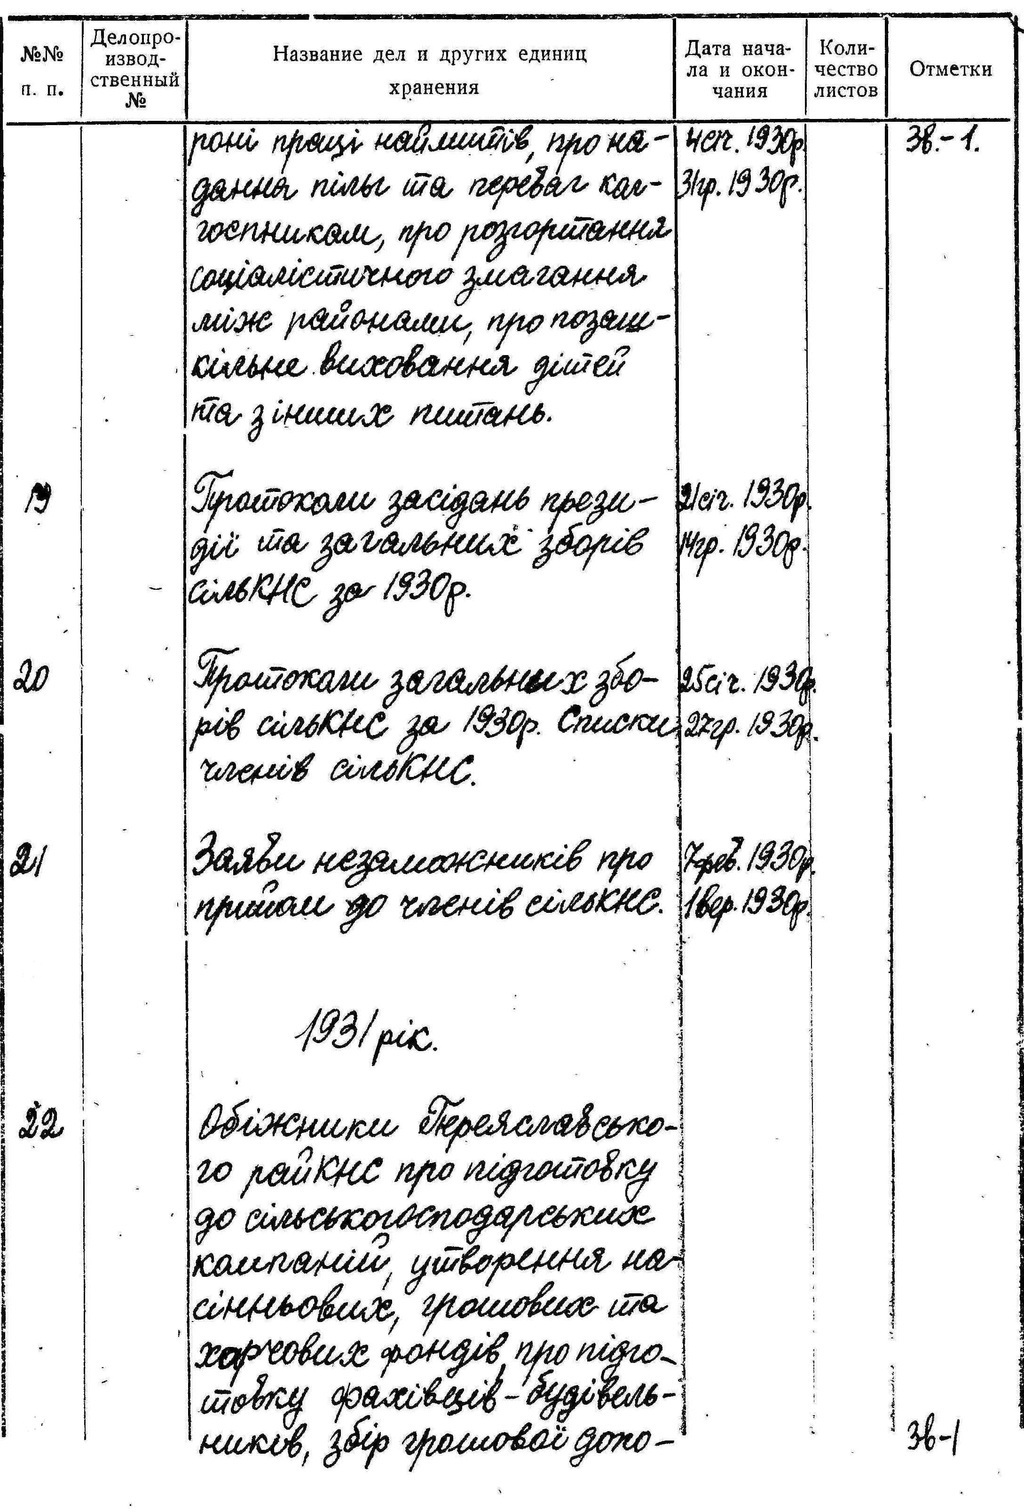 №№ п. п.
Делопро-
извод-
ственный
№
Название дел и других единиц
хранения
Дата нача-
ла и окон-
чания
Коли-
чество
листов
Отметки
роні праці наймитів, про на- 4 січ. 1930р. Зв.-1.
дання пільг та переваг кол- 31 гр. 1930р.
госпникам, про розгортання
соціалістичного змагання
між районами, про позаш-
кільне виховання дітей
та з інших питань.
19 Протоколи засідань прези- 21 січ. 1930р.
дії та загальних зборів 14 гр. 1930р.
сільКНС за 1930р.
20 Протоколи загальних збо- 25 січ. 1930р.
рів сільКНС за 1930р. Списки 27 гр. 1930р.
членів сільКНС.
21 Заяви незаможників про 7 фев. 1930р.
прийом до членів сільКНС. 1 вер. 1930р.
1931 рік.
22 Обіжники Переяславсько-
го райКНС про підготовку
до сільськогосподарських
кампаній, утворення на-
сінньових, грошових та
харчових фондів, про підго-
товку фахівців-будівель-
ників, збір грошової допо- Зв-1